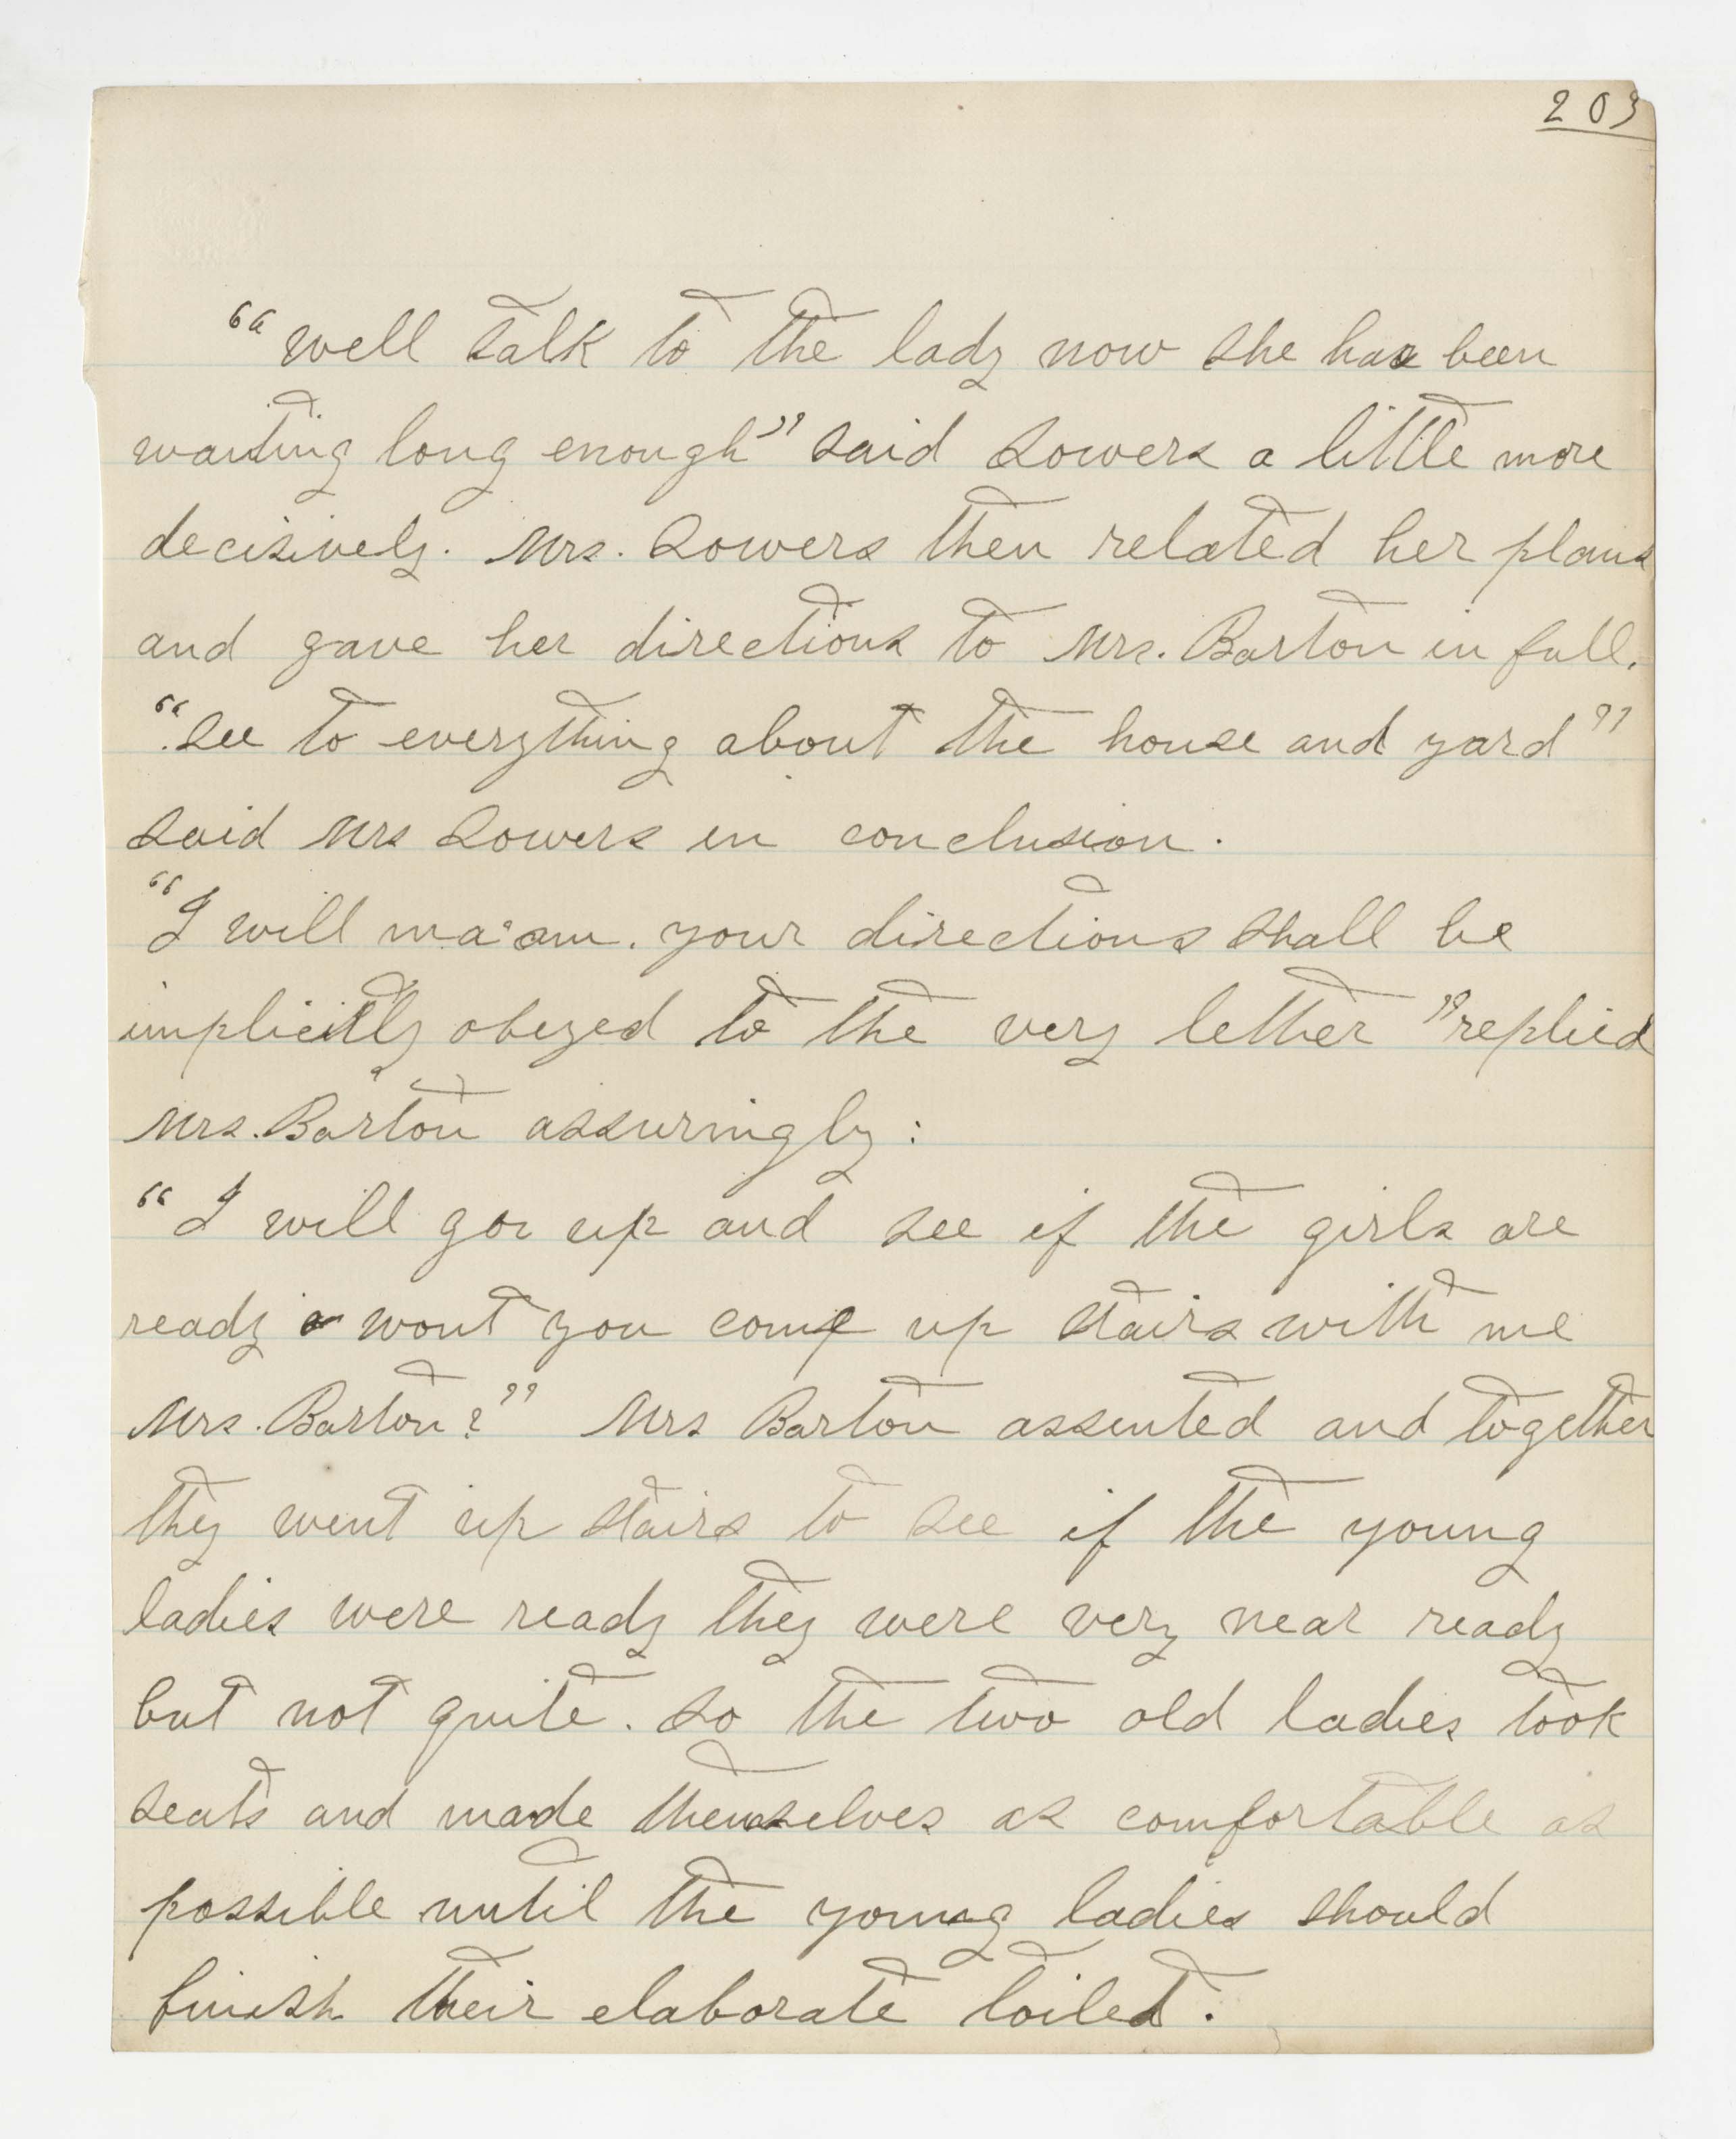 203
“well talk to the lady now she has been
waiting long enough” said Sowers a little more
decisively. Mrs. Sowers then related her plans
and gave her directions to Mrs. Barton in full.
“See to everything about the house and yard”
said Mrs Sowers in conclusion.
“I will ma'am. your directions shall be
implicitly obeyed to the very letter” replied
Mrs. Barton assuringly:
“I will go up and see if the girls are
ready wont you come up stairs with me
Mrs. Barton?” Mrs Barton assented and together
they went up stairs to see if the young
ladies were ready they were very near ready
but not quite. So the two old ladies took
seats and made themselves as comfortable as
possible until the young ladies should
finish their elaborate toilet.